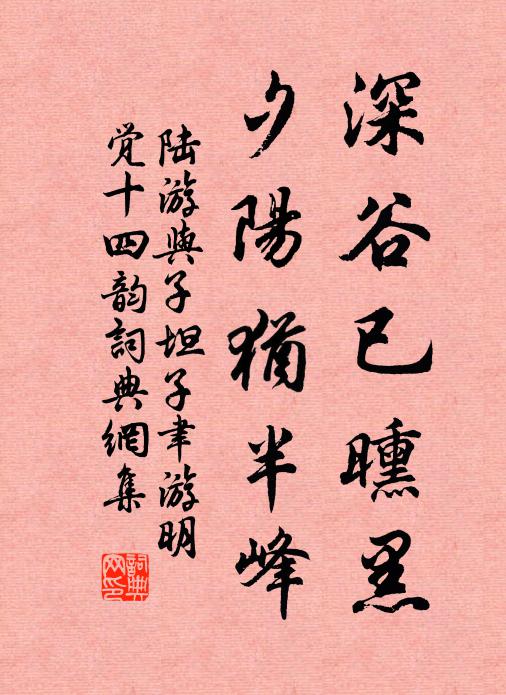 深谷已曛黑
夕陽猶半峰
陆游與子坦子聿游明
觉十四韵詞典網集
詞典网印